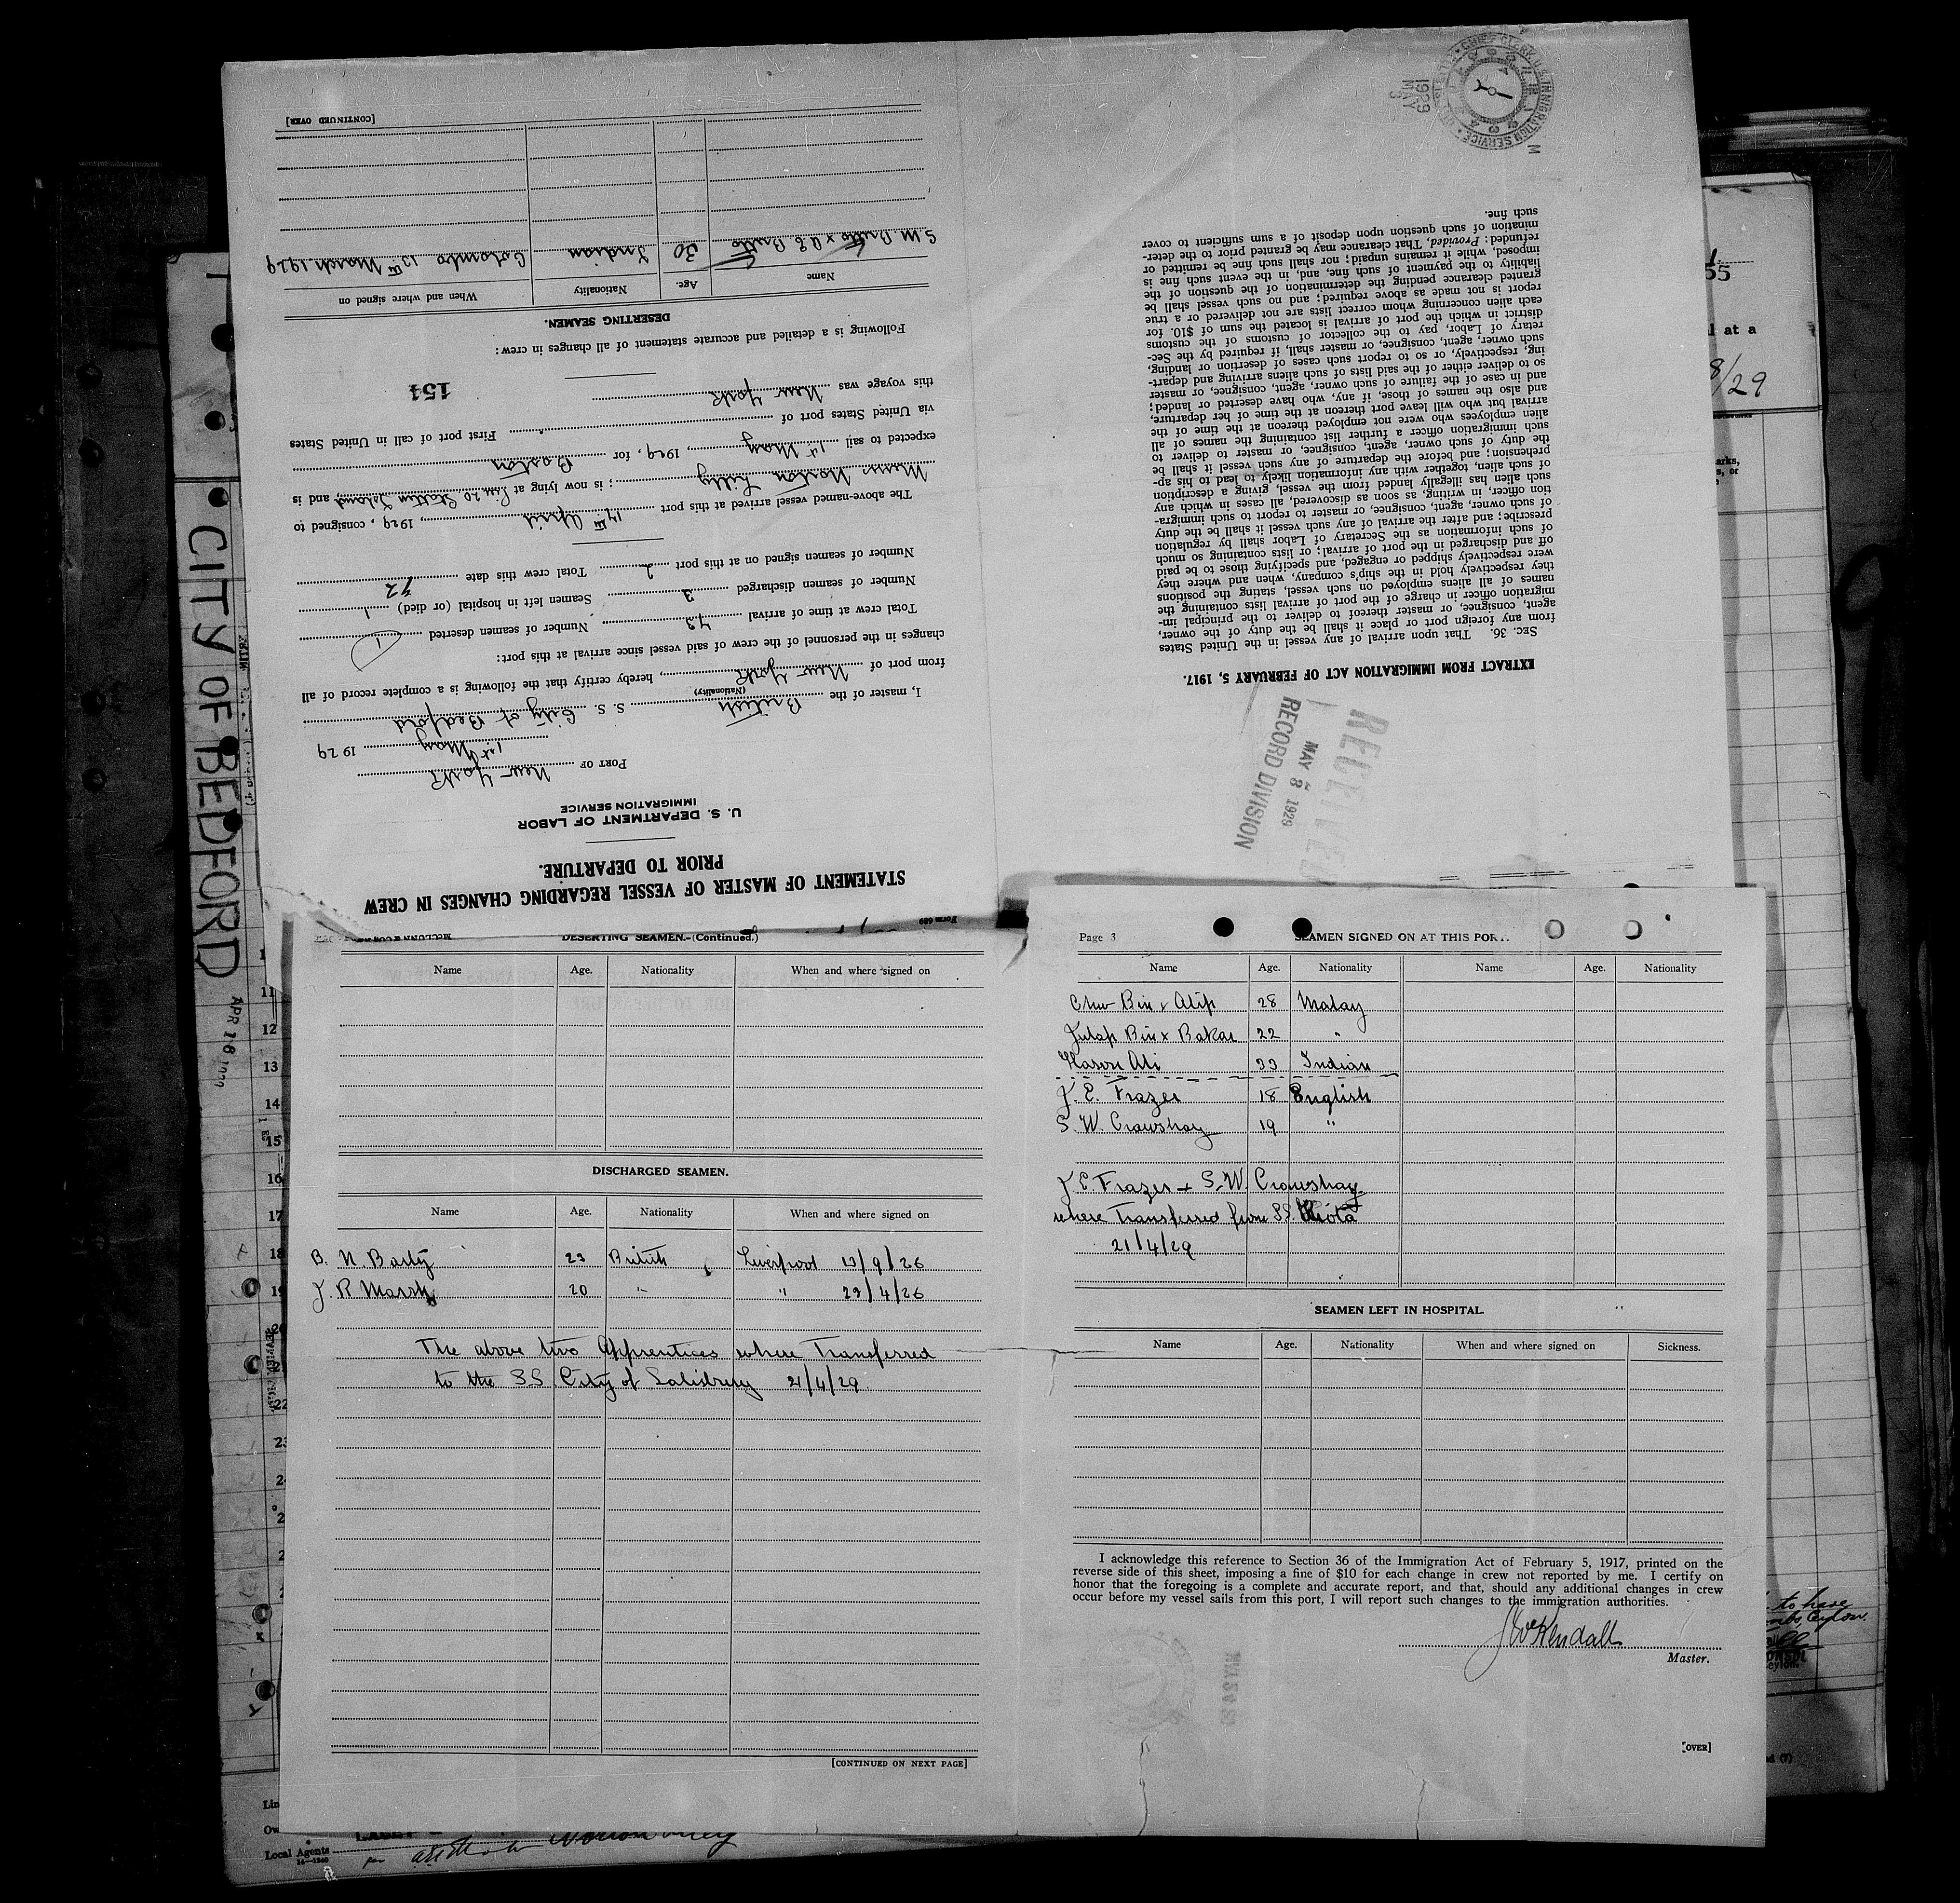 STATEMENT OF MASTER OF VESSEL REGARDING CHANGES IN CREW
PRIOR TO DEPARTURE.
U. S. DEPARTMENT OF LABOR
IMMIGRATION SERVICE
PORT OF New York
1st May 1929
I, master of the British S. S. City of Bedford
(Nationality)
from port of New York, hereby certify that the following is a complete record of all
changes in the personnel of the crew of said vessel since arrival at this port:
Total crew at time of arrival 73 Number of seamen deserted 1
Number of seamen discharged Seamen left in hospital (or died)
Number of seamen signed on at this port 2 Total crew this date 72
The above-named vessel arrived at this port 17th April, 1929, consigned to
Mess Norton Lilly; is now lying at Pier 20 Staten Island, and is
expected to sail 1st May, 1929, for Boston
via United States port of First port of call in United States
this voyage was New York
154
Following is a detailed and accurate statement of all changes in crew:
DESERTING SEAMEN.
Name Age. Nationality When and where signed on
30 Indian Colombo 12th March 1929
[CONTINUED OVER]
Form 689
EXTRACT FROM IMMIGRATION ACT OF FEBRUARY 5, 1917.
SEC. 36. That upon arrival of any vessel in the United States
from any foreign port or place it shall be the duty of the owner,
agent, consignee, or master thereof to deliver to the principal im-
migration officer in charge of the port of arrival lists containing the
names of all aliens employed on such vessel, stating the positions
they respectively hold in the ship's company, when and where they
were respectively shipped or engaged, and specifying those to be paid
off and discharged in the port of arrival; or lists containing so much
of such information as the Secretary of Labor shall by regulation
prescribe; and after the arrival of any such vessel it shall be the duty
of such owner, agent, consignee, or master to report to such immigra-
tion officer, in writing, as soon as discovered, all cases in which any
such alien has illegally landed from the vessel, giving a description
of such alien, together with any information likely to lead to his ap-
prehension; and before the departure of any such vessel it shall be
the duty of such owner, agent, consignee, or master to deliver to
such immigration officer a further list containing the names of all
alien employees who were not employed thereon at the time of the
arrival but who will leave port thereon at the time of her departure,
and also the names of those, if any, who have deserted or landed;
and in case of the failure of such owner, agent, consignee, or master
so to deliver either of the said lists of such aliens arriving and depart-
ing, respectively, or so to report such cases of desertion or landing,
such owner, agent, consignee, or master shall, if required by the Sec-
retary of Labor, pay to the collector of customs of the customs
district in which the port of arrival is located the sum of $10. for
each alien concerning whom correct lists are not delivered or a true
report is not made as above required; and no such vessel shall be
granted clearance pending the determination of the question of the
liability to the payment of such fine, and, in the event such fine is
imposed, while it remains unpaid; nor shall such fine be remitted or
refunded: Provided, That clearance may be granted prior to the deter-
mination of such question upon deposit of a sum sufficient to cover
such fine.
RECEIVED
MAY 8 1929
RECORD DIVISION
1929
MAY
CITY OF BEDFORD
8/29
DESERTING SEAMEN.-(Continued.)
Name Age. Nationality When and where signed on
DISCHARGED SEAMEN.
Name Age. Nationality When and where signed on
B. N. Barty 23 British Liverpool 13/9/26
J. R. Marsh 20 " " 23/4/26
The above two Apprentices where Transferred
to the S.S. City of Salisbury 21/4/29
[CONTINUED ON NEXT PAGE]
Page 3
SEAMEN SIGNED ON AT THIS PORT.
Name Age. Nationality Name Age. Nationality
Bin x Alip 28 Malay
Bin x Bakar 22 "
Ali 33 Indian
J. E. Frazer 18 English
S. W. Crawshay 19 "
J. E. Frazer + S. W. Crawshay
where Transferred from S.S. Kioto
21/4/29
SEAMEN LEFT IN HOSPITAL.
Name Age. Nationality When and where signed on Sickness.
I acknowledge this reference to Section 36 of the Immigration Act of February 5, 1917, printed on the
reverse side of this sheet, imposing a fine of $10 for each change in crew not reported by me. I certify on
honor that the foregoing is a complete and accurate report, and that, should any additional changes in crew
occur before my vessel sails from this port, I will report such changes to the immigration authorities.
Kendall
Master.
[OVER]
Local Agents